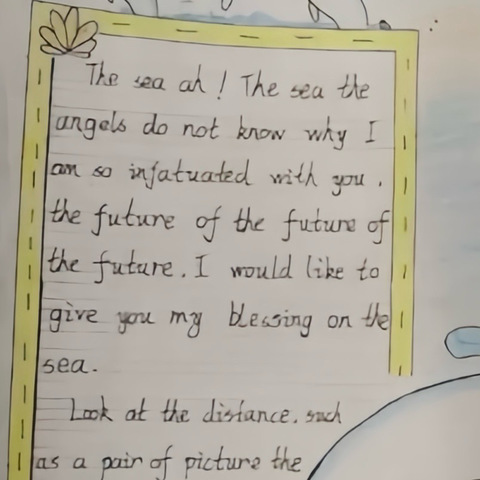 The sea ah! The sea the
angels do not know why I
am so infatuated with you.
the future of the future of
the future. I would like to
give you my blessing on the
sea.
Look at the distance. such
as a pair of picture the